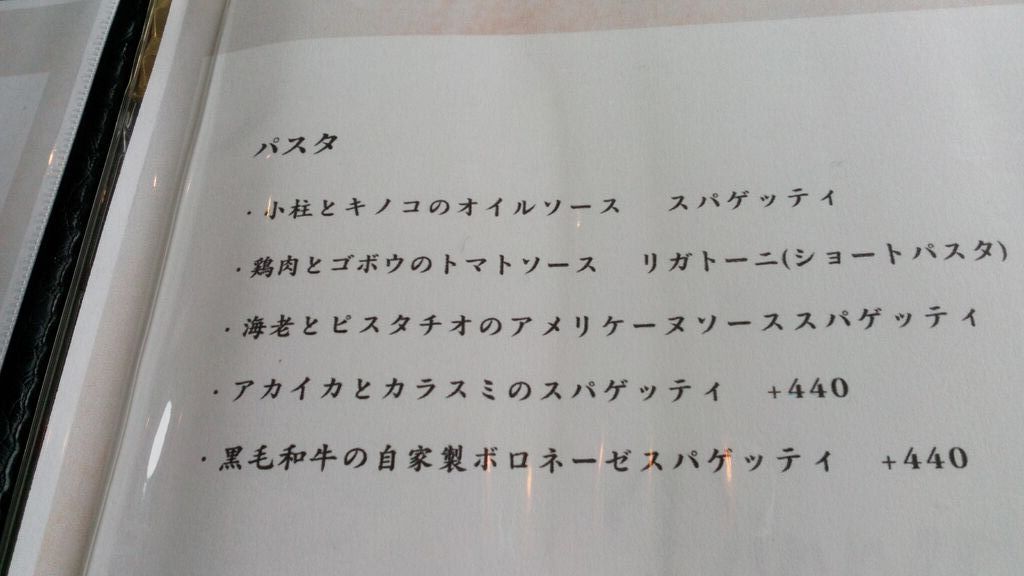 パスタ
・小柱とキノコのオイルソース　スパゲッティ
・鶏肉とゴボウのトマトソース　リガトーニ(ショートパスタ)
・海老とピスタチオのアメリケーヌソーススパゲッティ
・アカイカとカラスミのスパゲッティ　+440
・黒毛和牛の自家製ボロネーゼスパゲッティ　+440